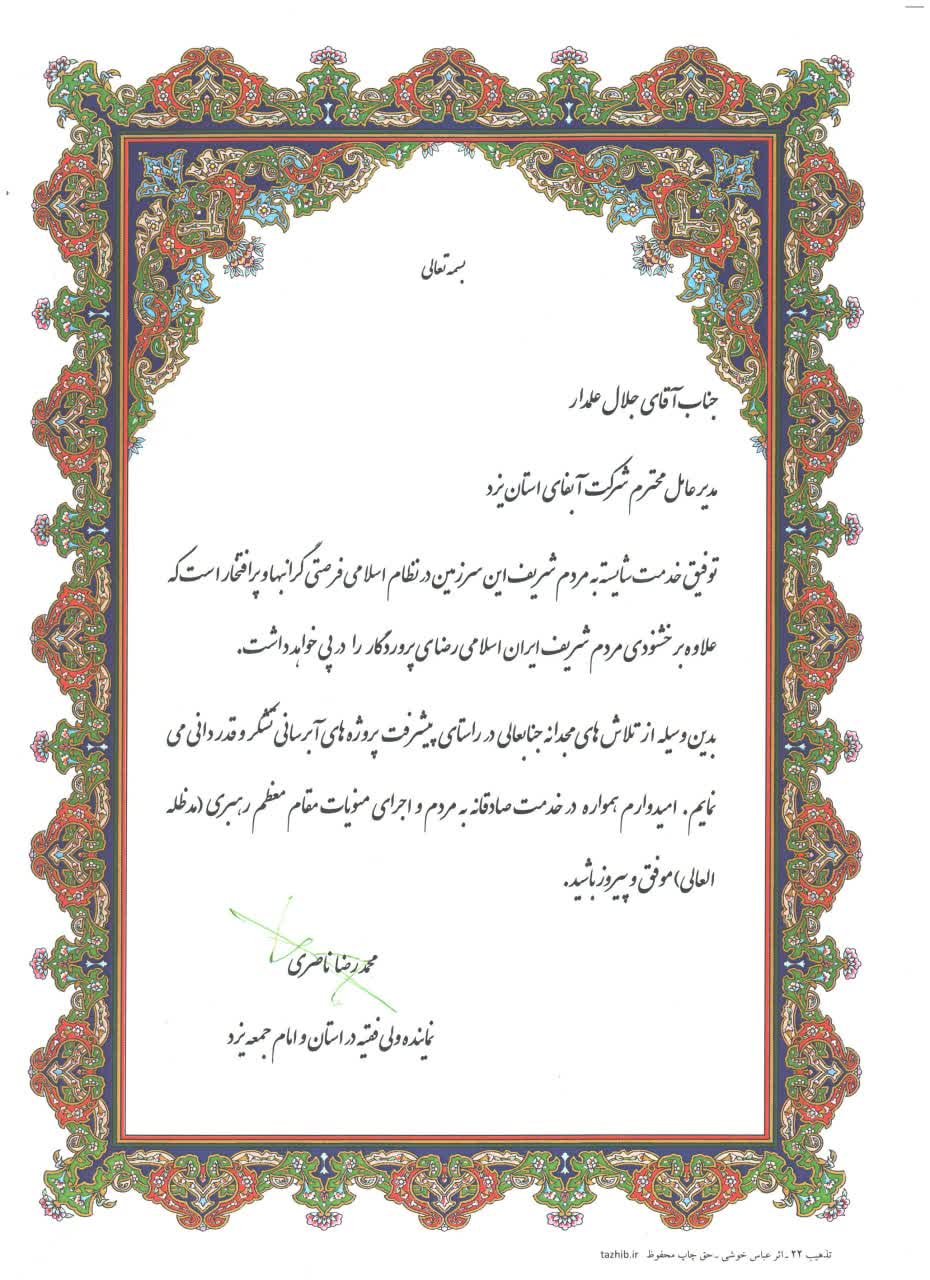 بسمه تعالی
جناب آقای جلال علمدار
مدیر عامل محترم شرکت آبفای استان یزد
توفیق خدمت شایسته به مردم شریف این سرزمین در نظام اسلامی فرصتی گرانبها و پرافتخار است که
علاوه بر خشنودی مردم شریف ایران اسلامی رضای پروردگار را در پی خواهد داشت.
بدین وسیله از تلاش های مجدانه جنابعالی در راستای پیشرفت پروژه های آبرسانی تشکر و قدر دانی می
نمایم. امیدوارم همواره در خدمت صادقانه به مردم و اجرای منویات مقام معظم رهبری (مدظله
العالی) موفق و پیروز باشید.
محمدرضا ناصری
نماینده ولی فقیه در استان و امام جمعه یزد
تذهیب ۲۲ ـ اثر عباس خوشی ـ حق چاپ محفوظ tazhib.ir